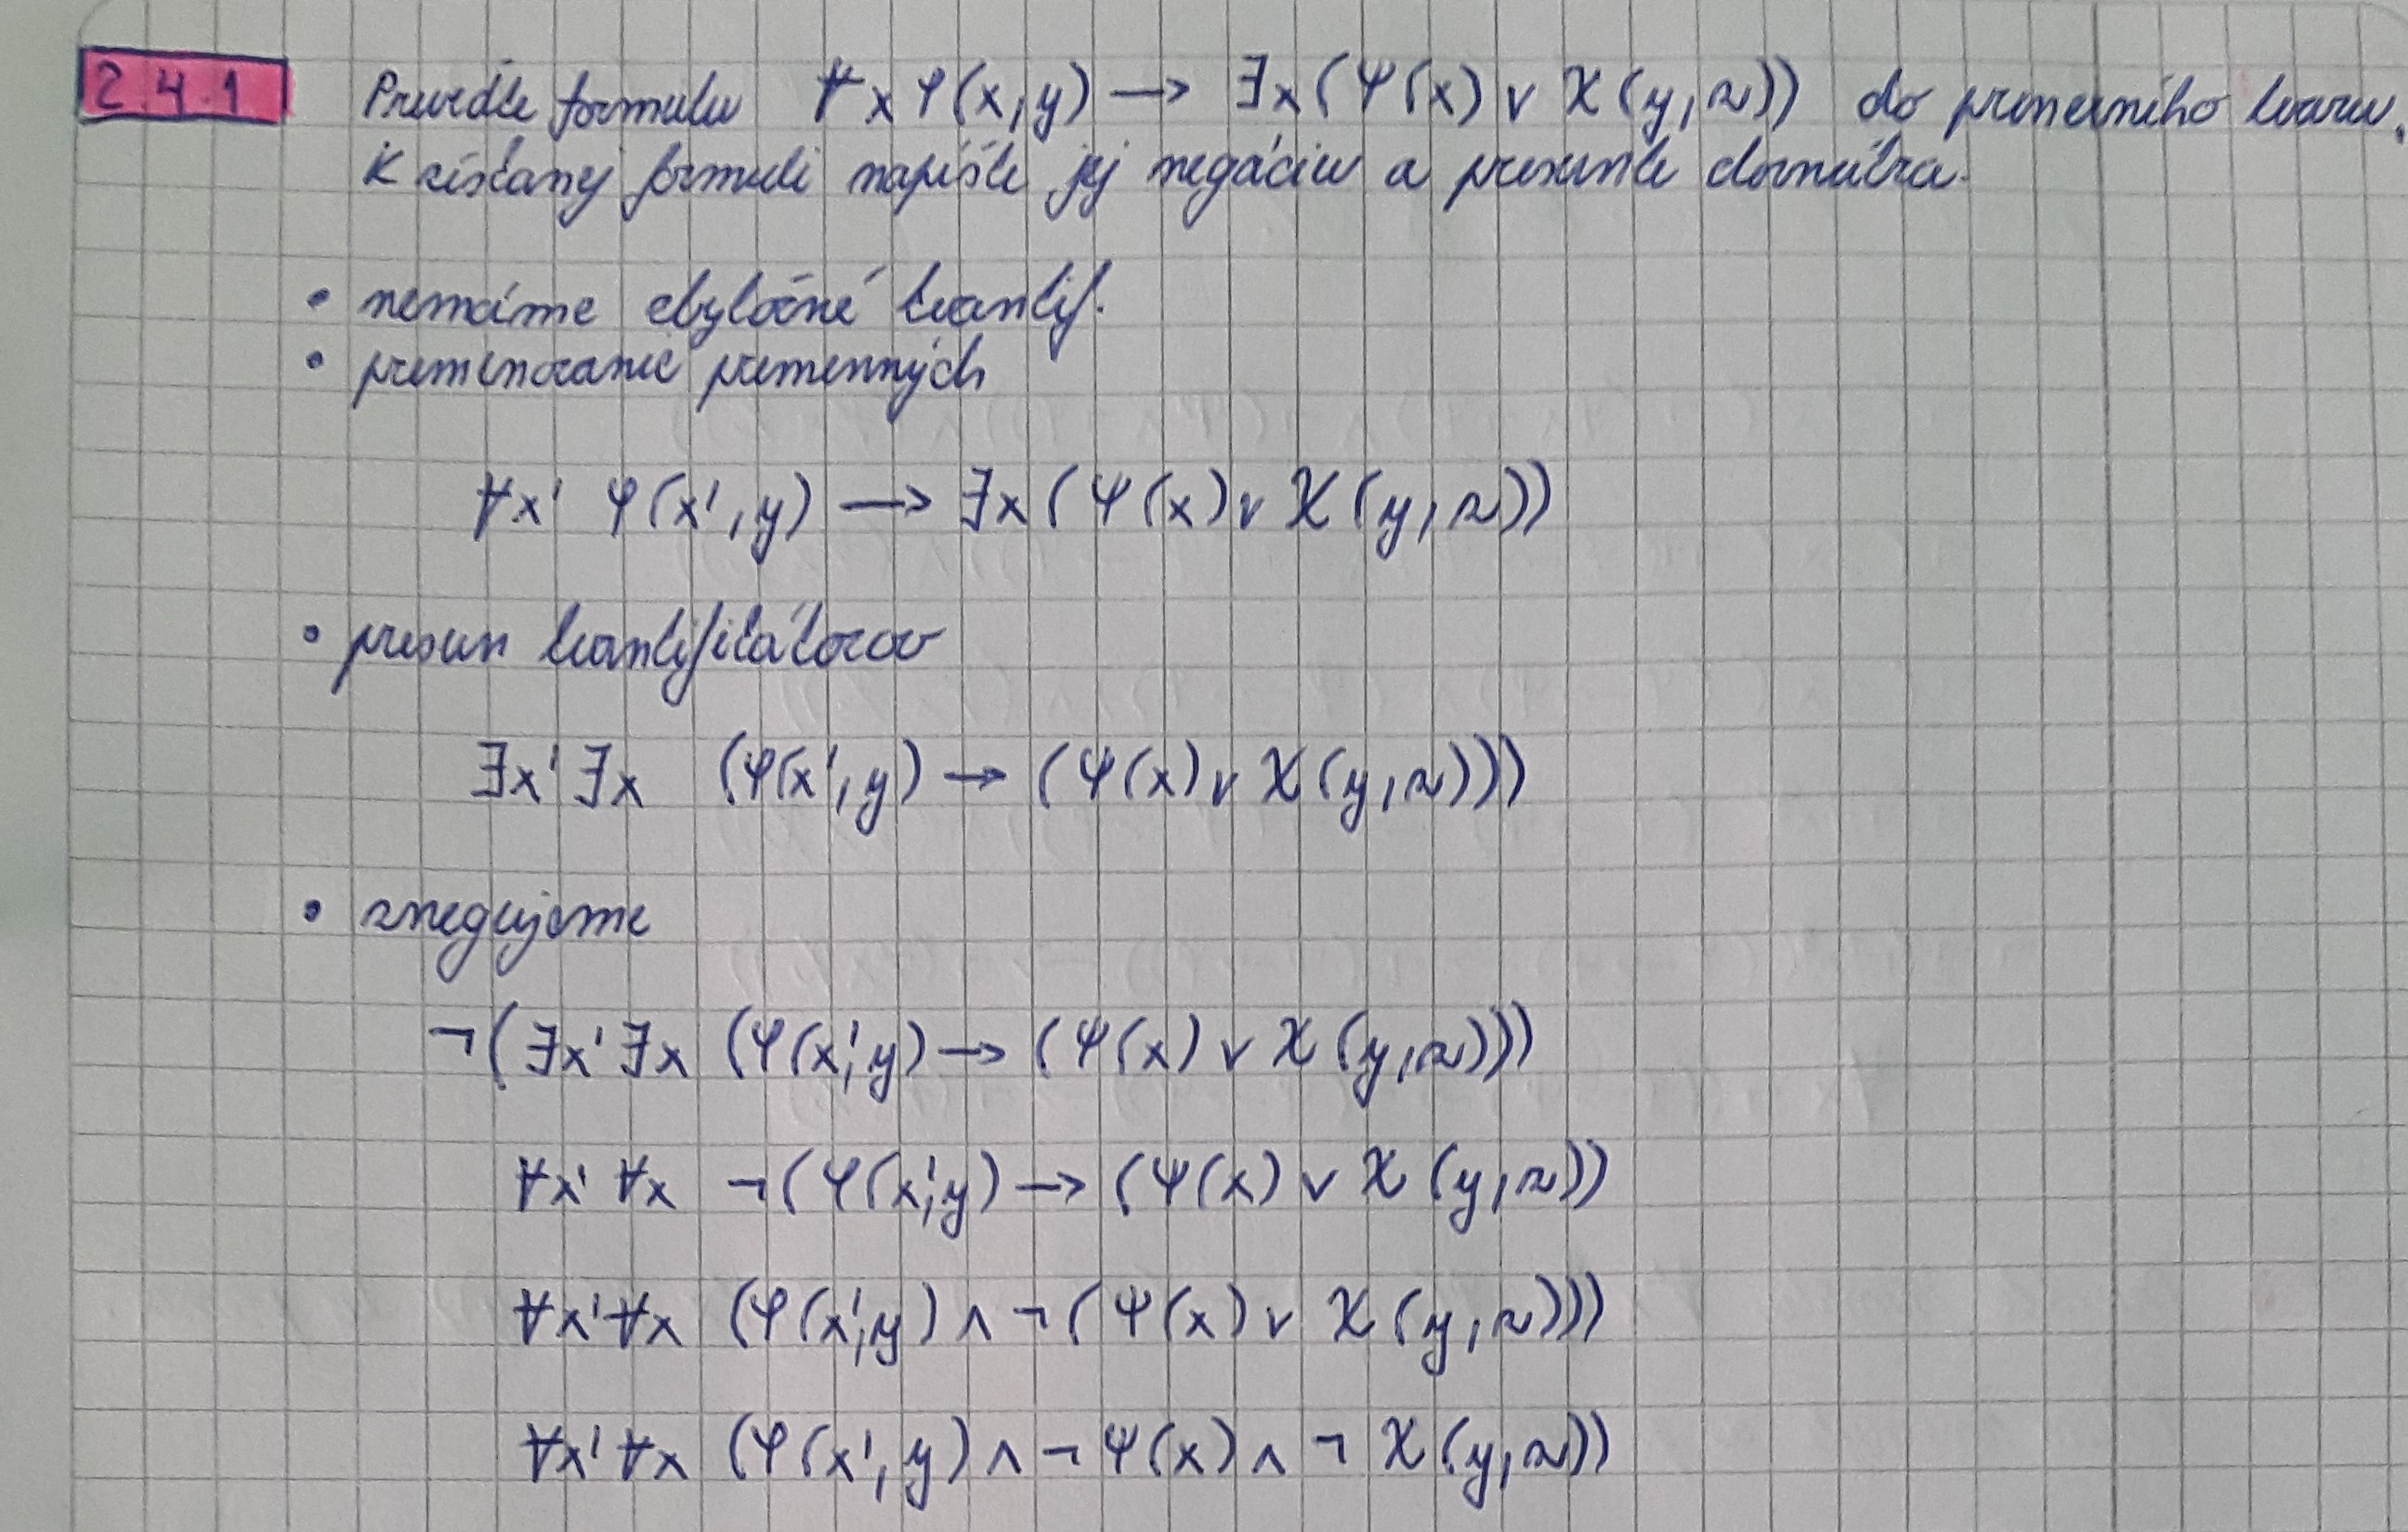 2.4.1 Preveďte formulu ∀x φ(x,y) → ∃x(ψ(x) ∨ χ(y,z)) do prenexného tvaru.
K získanej formuli napíšte jej negáciu a presuňte dovnútra.
• nemáme zbytočné kvantif.
• premenovanie premenných
∀x' φ(x',y) → ∃x(ψ(x) ∨ χ(y,z))
• presun kvantifikátorov
∃x' ∃x (φ(x',y) → (ψ(x) ∨ χ(y,z)))
• znegujeme
¬(∃x' ∃x (φ(x',y) → (ψ(x) ∨ χ(y,z)))
∀x' ∀x ¬(φ(x',y) → (ψ(x) ∨ χ(y,z))
∀x' ∀x (φ(x',y) ∧ ¬(ψ(x) ∨ χ(y,z)))
∀x' ∀x (φ(x',y) ∧ ¬ψ(x) ∧ ¬χ(y,z))